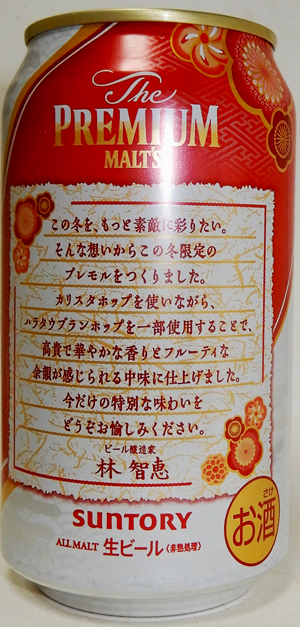 The
PREMIUM
MALT'S
この冬を、もっと素敵に彩りたい。
そんな想いからこの冬限定の
プレモルをつくりました。
カリスタホップを使いながら、
ハラタウブランホップを一部使用することで、
高貴で華やかな香りとフルーティな
余韻が感じられる中味に仕上げました。
今だけの特別な味わいを
どうぞお愉しみください。
ビール醸造家
林 智恵
SUNTORY
ALL MALT 生ビール〈非熱処理〉
さけ
お酒